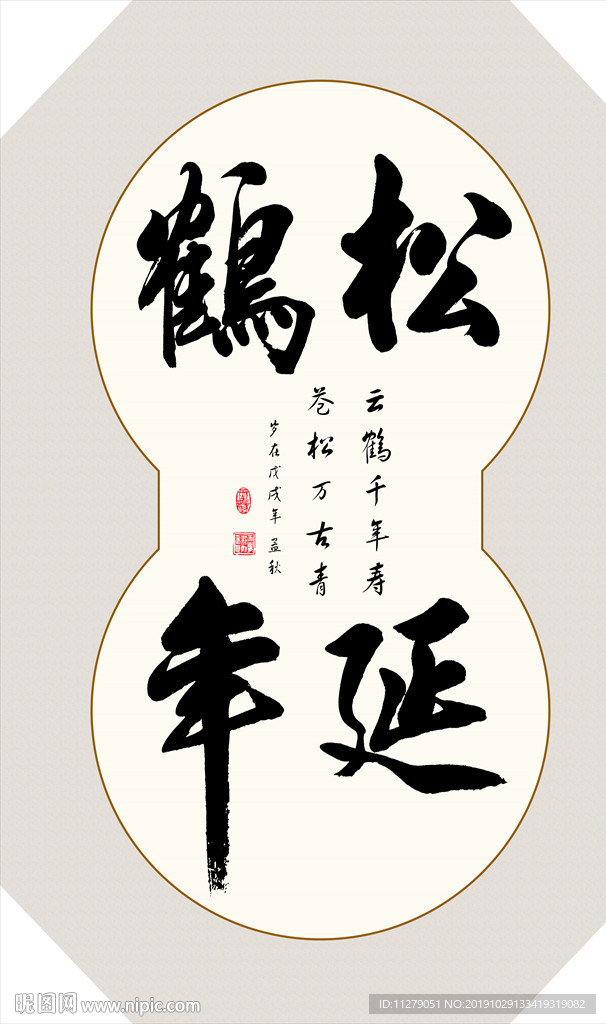 松鹤
延年
云鹤千年寿
苍松万古青
岁在戊戌年孟秋
昵图网 www.nipic.com
ID:11279051 NO:20191029133419319082